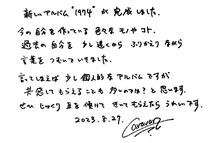 新しいアルバム "1974" が 完成しました。
今の自分を作っている 色々な モノやコト、
過去の自分を 少し遠くから ふりかえり ながら
言葉をつむいでいきました。
言ってしまえば 少し個人的なアルバムですが
共感してもらえることも 多いのでは？と思います。
ぜひ じっくり 耳を傾けて きいてもらえたら うれしいです。
2023.8.27.